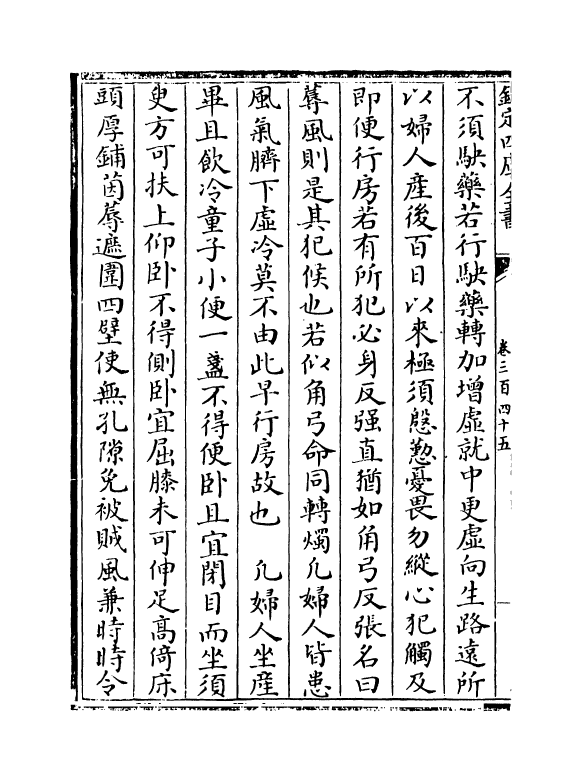 欽定四庫全書
卷三百四十五
不須駃藥若行駃藥轉加增虛就中更虛向生路遠所
以婦人產後百日以來極須慇懃憂畏勿縱心犯觸及
即便行房若有所犯必身反强直猶如角弓反張名曰
蓐風則是其犯候也若似角弓命同轉燭凡婦人皆患
風氣臍下虛冷莫不由此早行房故也　凡婦人坐産
畢且飲冷童子小便一盞不得便卧且宜閉目而坐須
臾方可扶上仰卧不得側卧宜屈膝未可伸足髙倚床
頭厚鋪茵蓐遮圍四壁使無孔隙免被賊風兼時時令